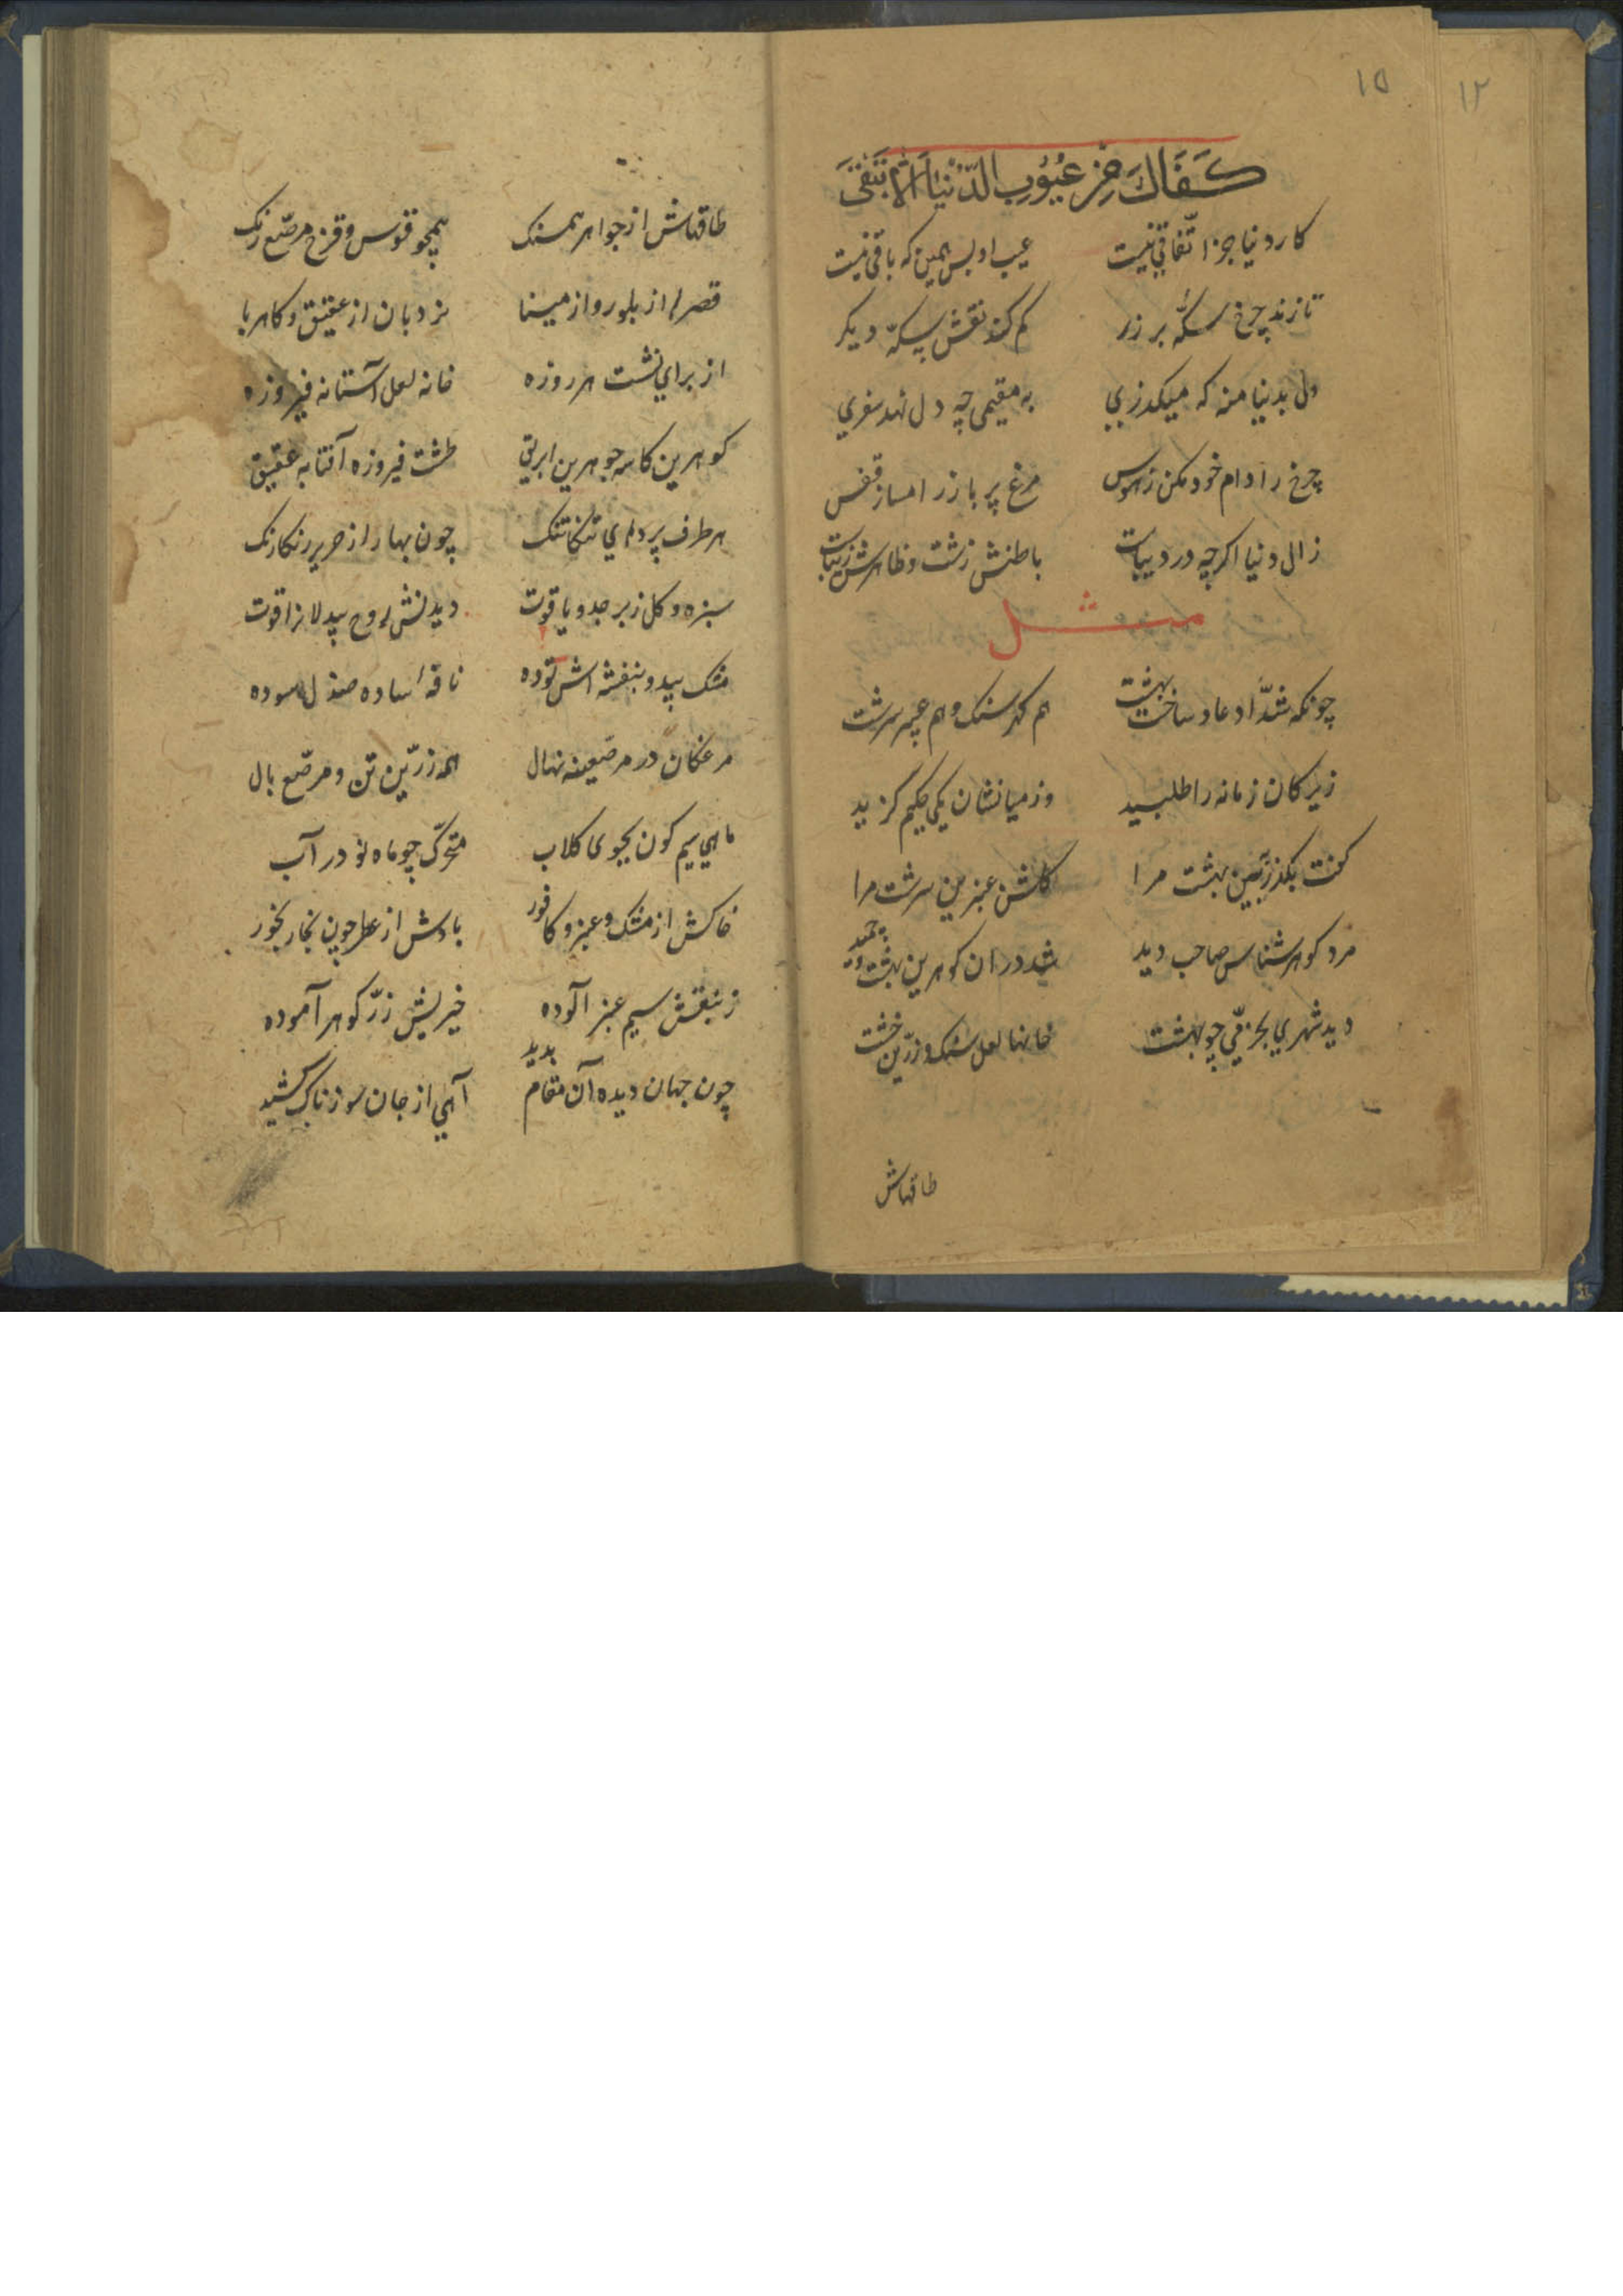 ۱۵
۱۲
كَفَاكَ مِنْ عُيُوبِ الدُّنْيَا اَلَّا تَبْقَىٰ
كار دنيا جز اتّفاقي نيست عيب او بس همين كه باقي نيست
تا زند چرخ سكّهٔ بر زر كم كند نقش سكهٔ ديكر
دل بدنيا منه كه ميكذري به مقيمي چه دل نهد سفري
چرخ را دام خود مكن ز هوس مرغ پر باز را مساز قفس
زال دنيا اكرچه در ديباست باطنش زشت و ظاهرش زيباست
مثل
چونكه شدّاد عاد ساخت بهشت هم كهر سنك و هم عبير سرشت
زيركان زمانه را طلبيد وز ميانشان يكي حكيم كزيد
كفت بكذر ببين بهشت مرا كلشن عنبرين سرشت مرا
مرد كوهر شناس صاحب ديد شد در ان كوهرين بهشت و چميد
ديد شهري بخرّمي چو بهشت خانها لعل سنك و زرّين خشت
طاقهاش
طاقهاش از جواهر همسنك همچو قوس و قزح مرصّع رنك
قصرها از بلور و از مينا نردبان از عقيق و كاهربا
از براي نشست هر روزه خانه لعل آستانه فيروزه
كوهرين كاسه جوهرين ابريق طشت فيروزه آفتابه عقيق
هر طرف پردهاي تنكاتنك چون بهار از حرير رنكارنك
سبزه و كل زبرجد و ياقوت ديدنش روح بيدلانرا قوت
مشك بيد و بنفشه اش توده نافهٔ ساده صندل سوده
مرغكان در مرصعينه نهال همه زرّين تن و مرصّع بال
ماهي سيم كون بجوى كلاب متحرّك چو ماه نو در آب
خاكش از مشك و عنبر و كافور بادش از عطر چون بخار بخور
زنبقش سيم عنبر آلوده خيريش زرّ كوهر آموده
چون جهان ديده آن مقام بديد آهي از جان سوزناك كشيد